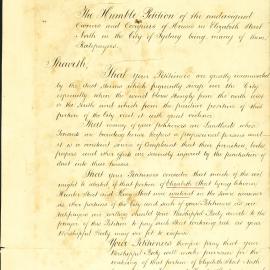 The Humble Petition of the undersigned
Owners and Occupiers of Houses in Elizabeth Street
North in the City of Sydney being, many of them,
Ratepayers.
Sheweth,
That your Petitioners are greatly incommoded
by the dust storms which frequently sweep over the City,
especially when the wind blows strongly from the south east
to the South and which from the peculiar position of that
portion of the City visit it with great violence.
That many of your petitioners are Landlords whose
Tenants are
and it is a constant source of Complaint that their furniture, books
papers and other effects are seriously injured by the penetration of
dust into their houses.
That your Petitioners consider that much of the evil
might be abated if that portion of Elizabeth Street lying between
Hunter Street and Street was watered in the same manner
as other portions of the City and such of your Petitioners as are
ratepayers are willing should your Worshipful Body accede to the
prayer of this Petition to pay such Watering rate as your
Worshipful Body may see fit to impose.
Your Petitioners therefore pray that your
Worshipful Body will make provision for the
watering of that portion of Elizabeth Street North